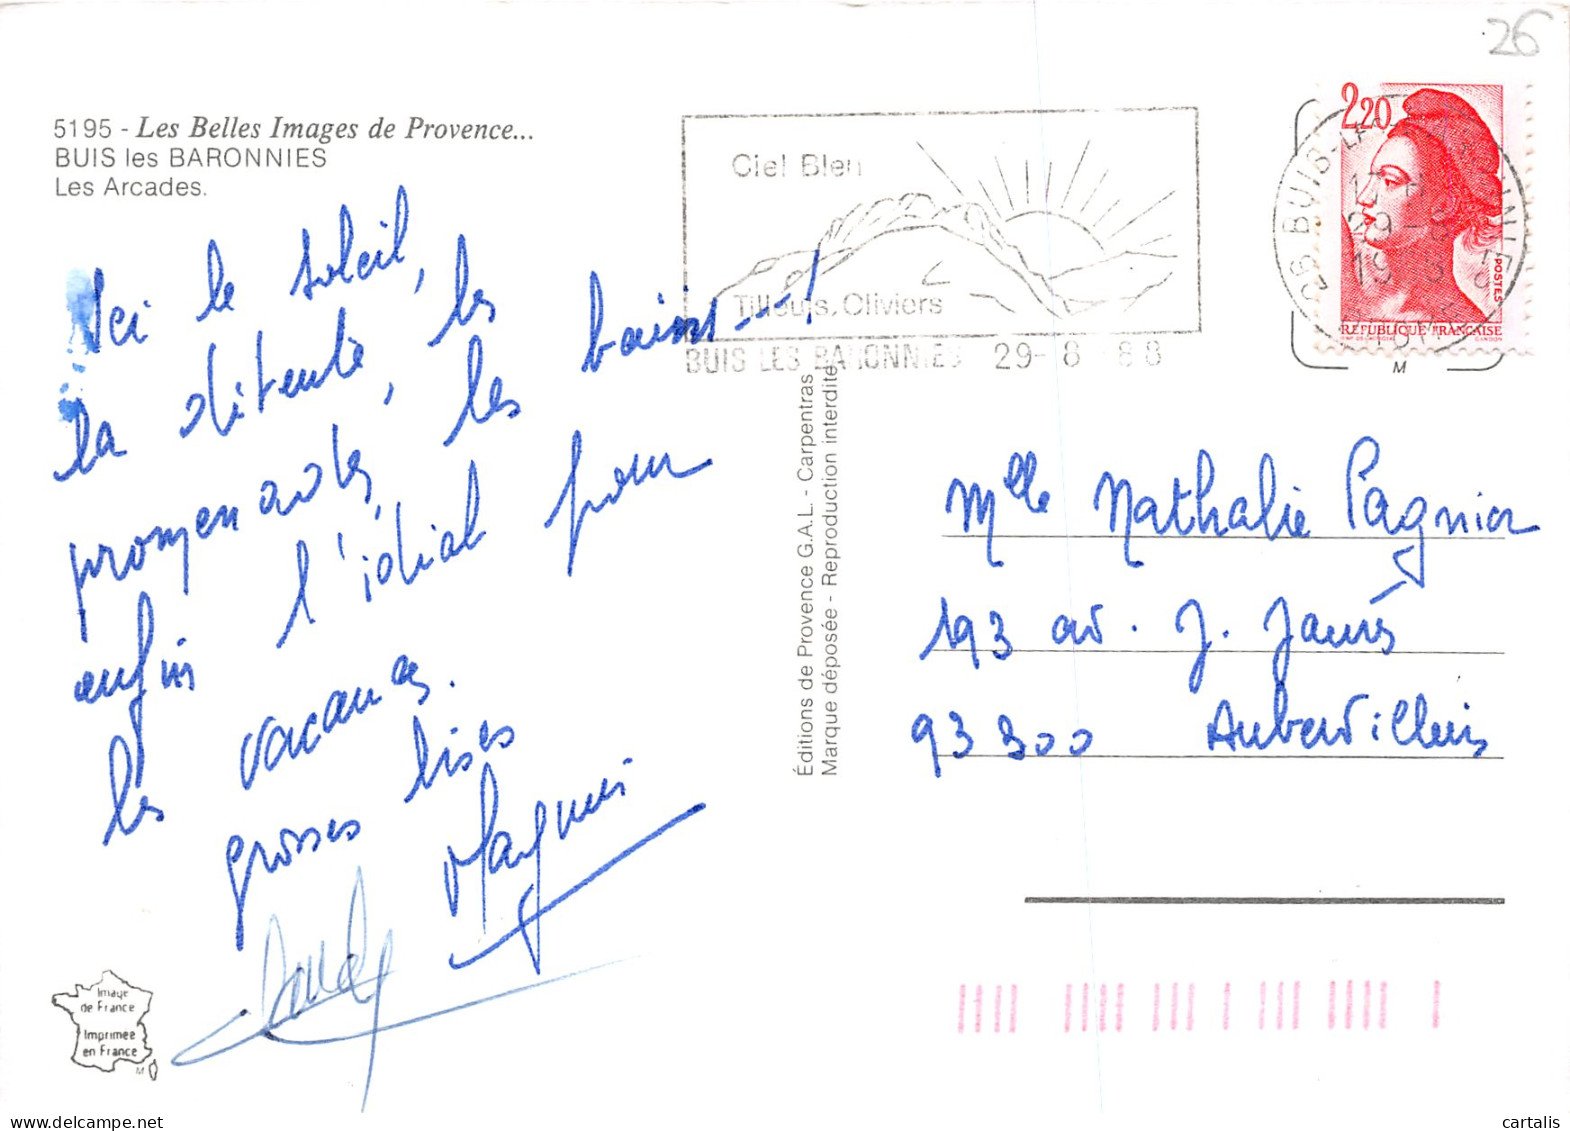 26
5195 - Les Belles Images de Provence...
BUIS les BARONNIES
Les Arcades.
Ici le soleil,
la détente, les bains---!
promenades, les
enfin l'idéal pour
les vacances.
grosses bises
Ciel Bleu
Tilleuls, Oliviers
BUIS LES BARONNIES 29-8 88
26 BUIS-LES
29-8
19
2,20
POSTES
REPUBLIQUE FRANÇAISE
GANDON
M
Éditions de Provence G.A.L. - Carpentras
Marque déposée - Reproduction interdite
Mlle Nathalie Pagnier
193 av. J. Jaurès
93300 Aubervilliers
Image
de France
Imprimée
en France
M
cartalis